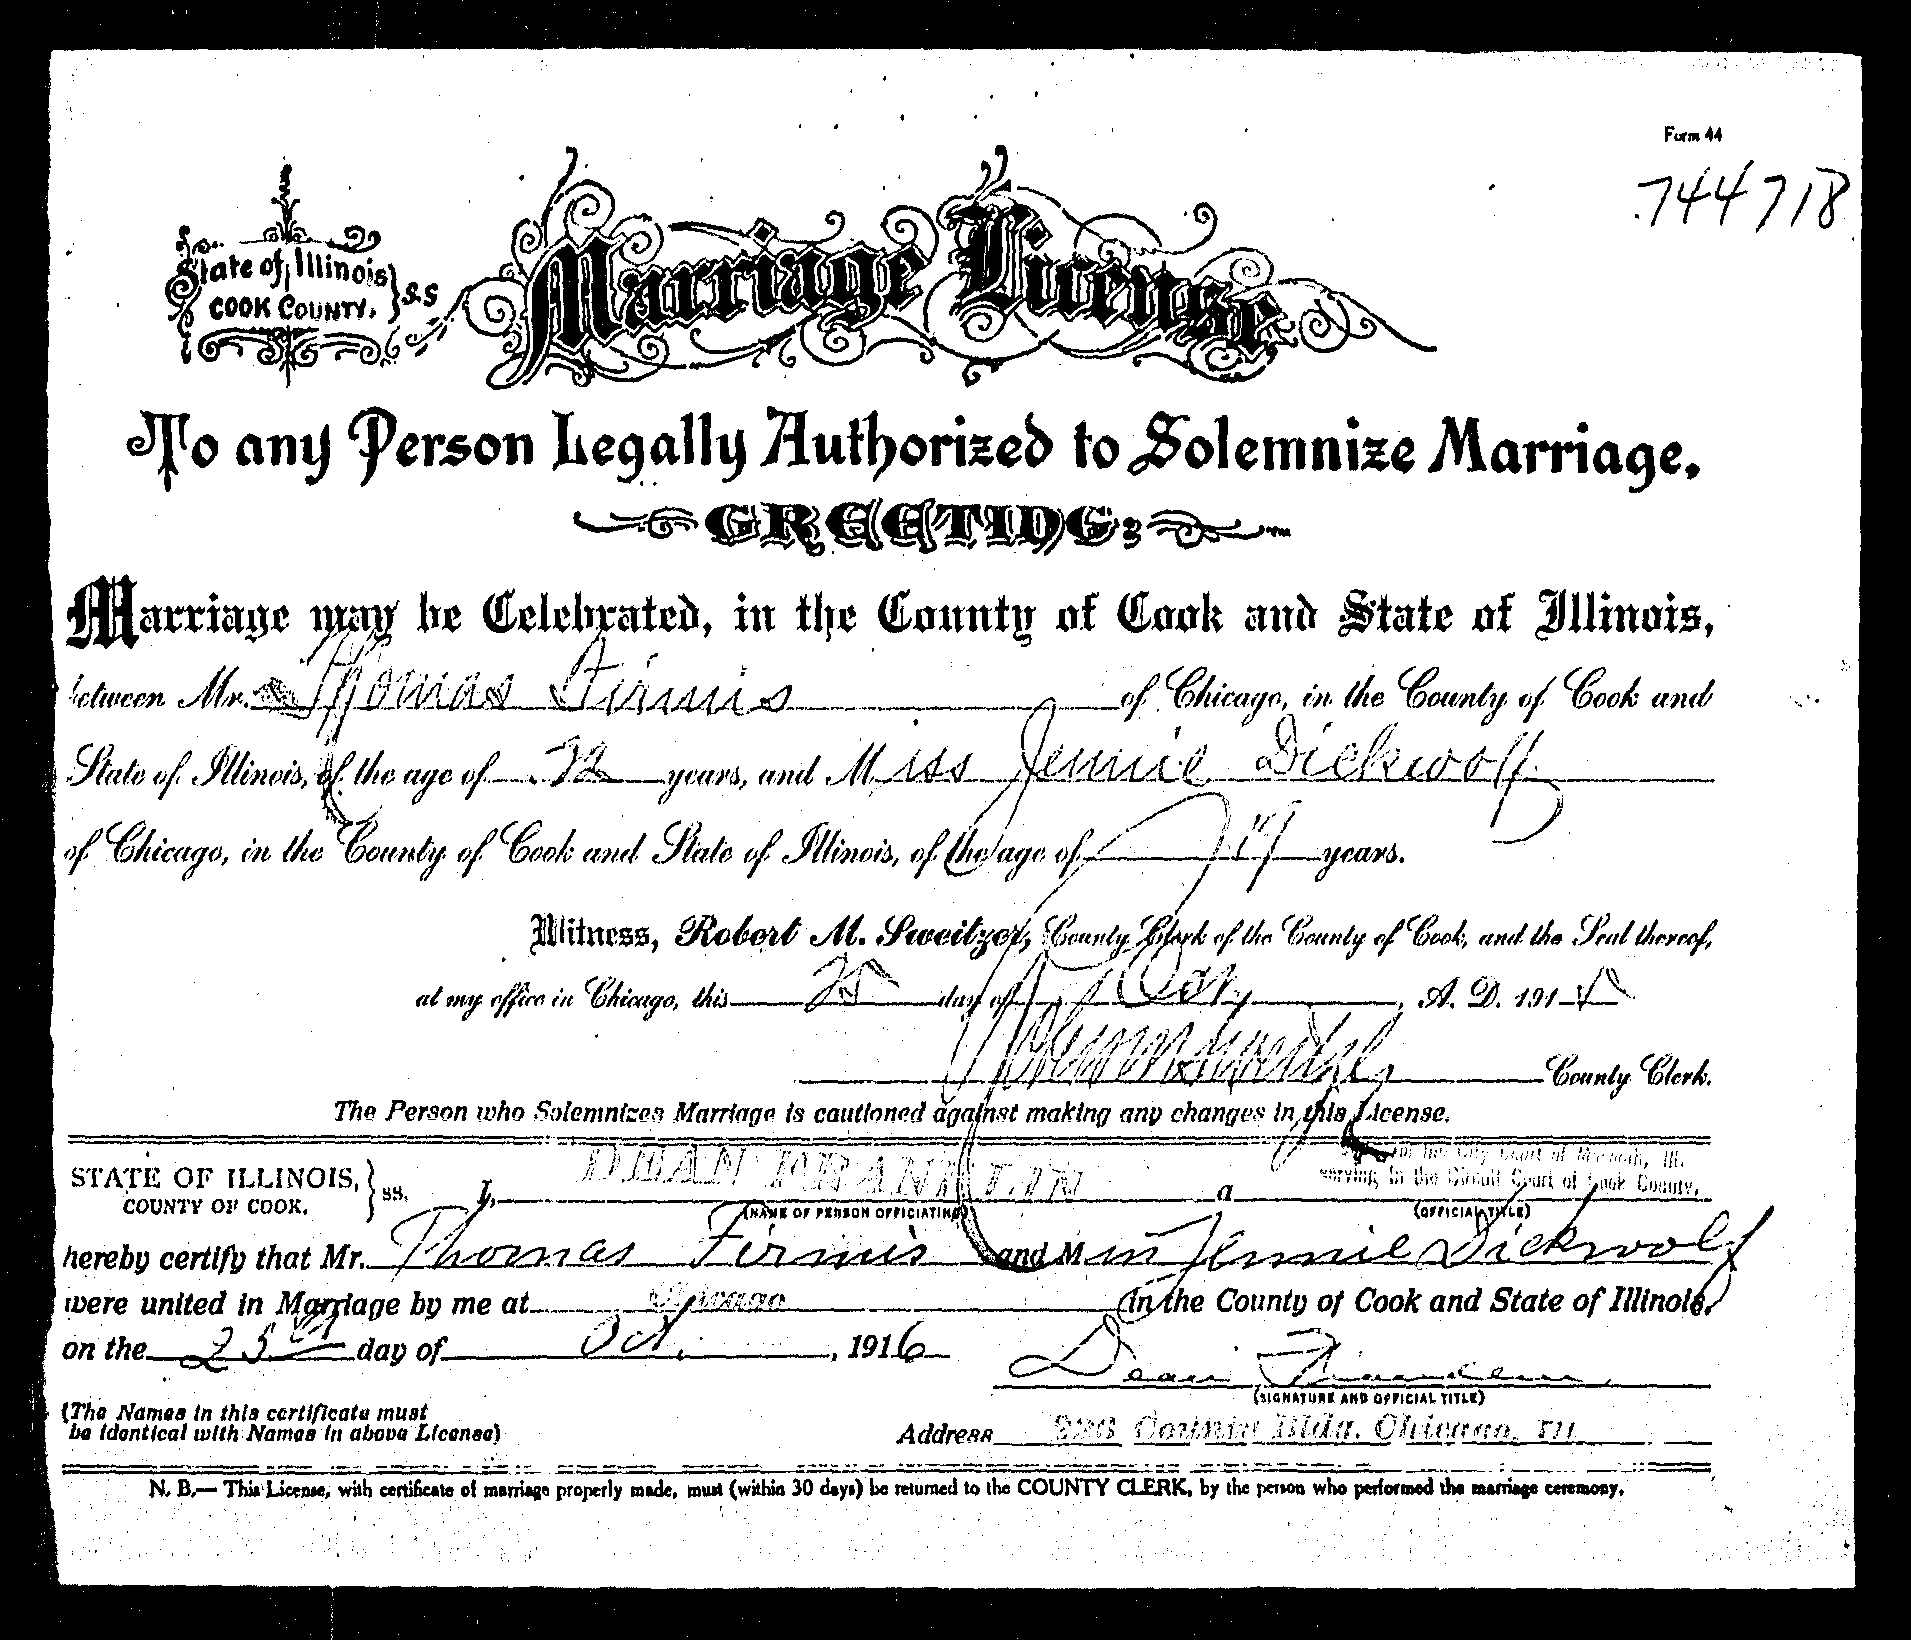 Form 44
744718
State of Illinois } S.S
COOK COUNTY.
Marriage License
To any Person Legally Authorized to Solemnize Marriage.
GREETING:
Marriage may be Celebrated, in the County of Cook and State of Illinois,
between Mr. Thomas Firmis of Chicago, in the County of Cook and
State of Illinois, of the age of 22 years, and Miss Jennie Dickwolf
of Chicago, in the County of Cook and State of Illinois, of the age of 19 years.
Witness, Robert M. Sweitzer, County Clerk of the County of Cook, and the Seal thereof,
at my office in Chicago, this 25 day of Oct, A. D. 191
Robert M Sweitzer County Clerk.
The Person who Solemnizes Marriage is cautioned against making any changes in this License.
STATE OF ILLINOIS, } ss. I, DEAN FRANKLIN a
COUNTY OF COOK.
of the City Court of, Ill.
serving in the Circuit Court of Cook County,
(NAME OF PERSON OFFICIATING) (OFFICIAL TITLE)
hereby certify that Mr. Thomas Firmis and Miss Jennie Dickwolf
were united in Marriage by me at Chicago in the County of Cook and State of Illinois,
on the 25th day of Oct., 1916
Dean Franklin
(SIGNATURE AND OFFICIAL TITLE)
(The Names in this certificate must
be identical with Names in above License)
Address Bldg. Chicago, Ill
N. B.— This License, with certificate of marriage properly made, must (within 30 days) be returned to the COUNTY CLERK, by the person who performed the marriage ceremony.